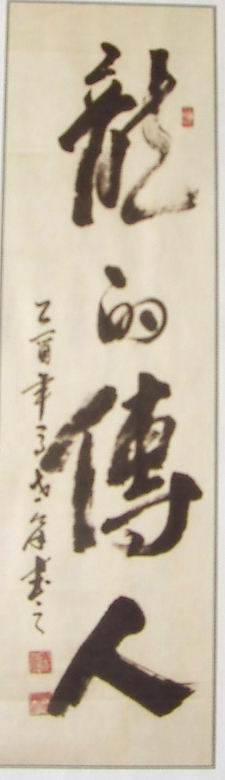 龍的傳人
乙酉年
書之